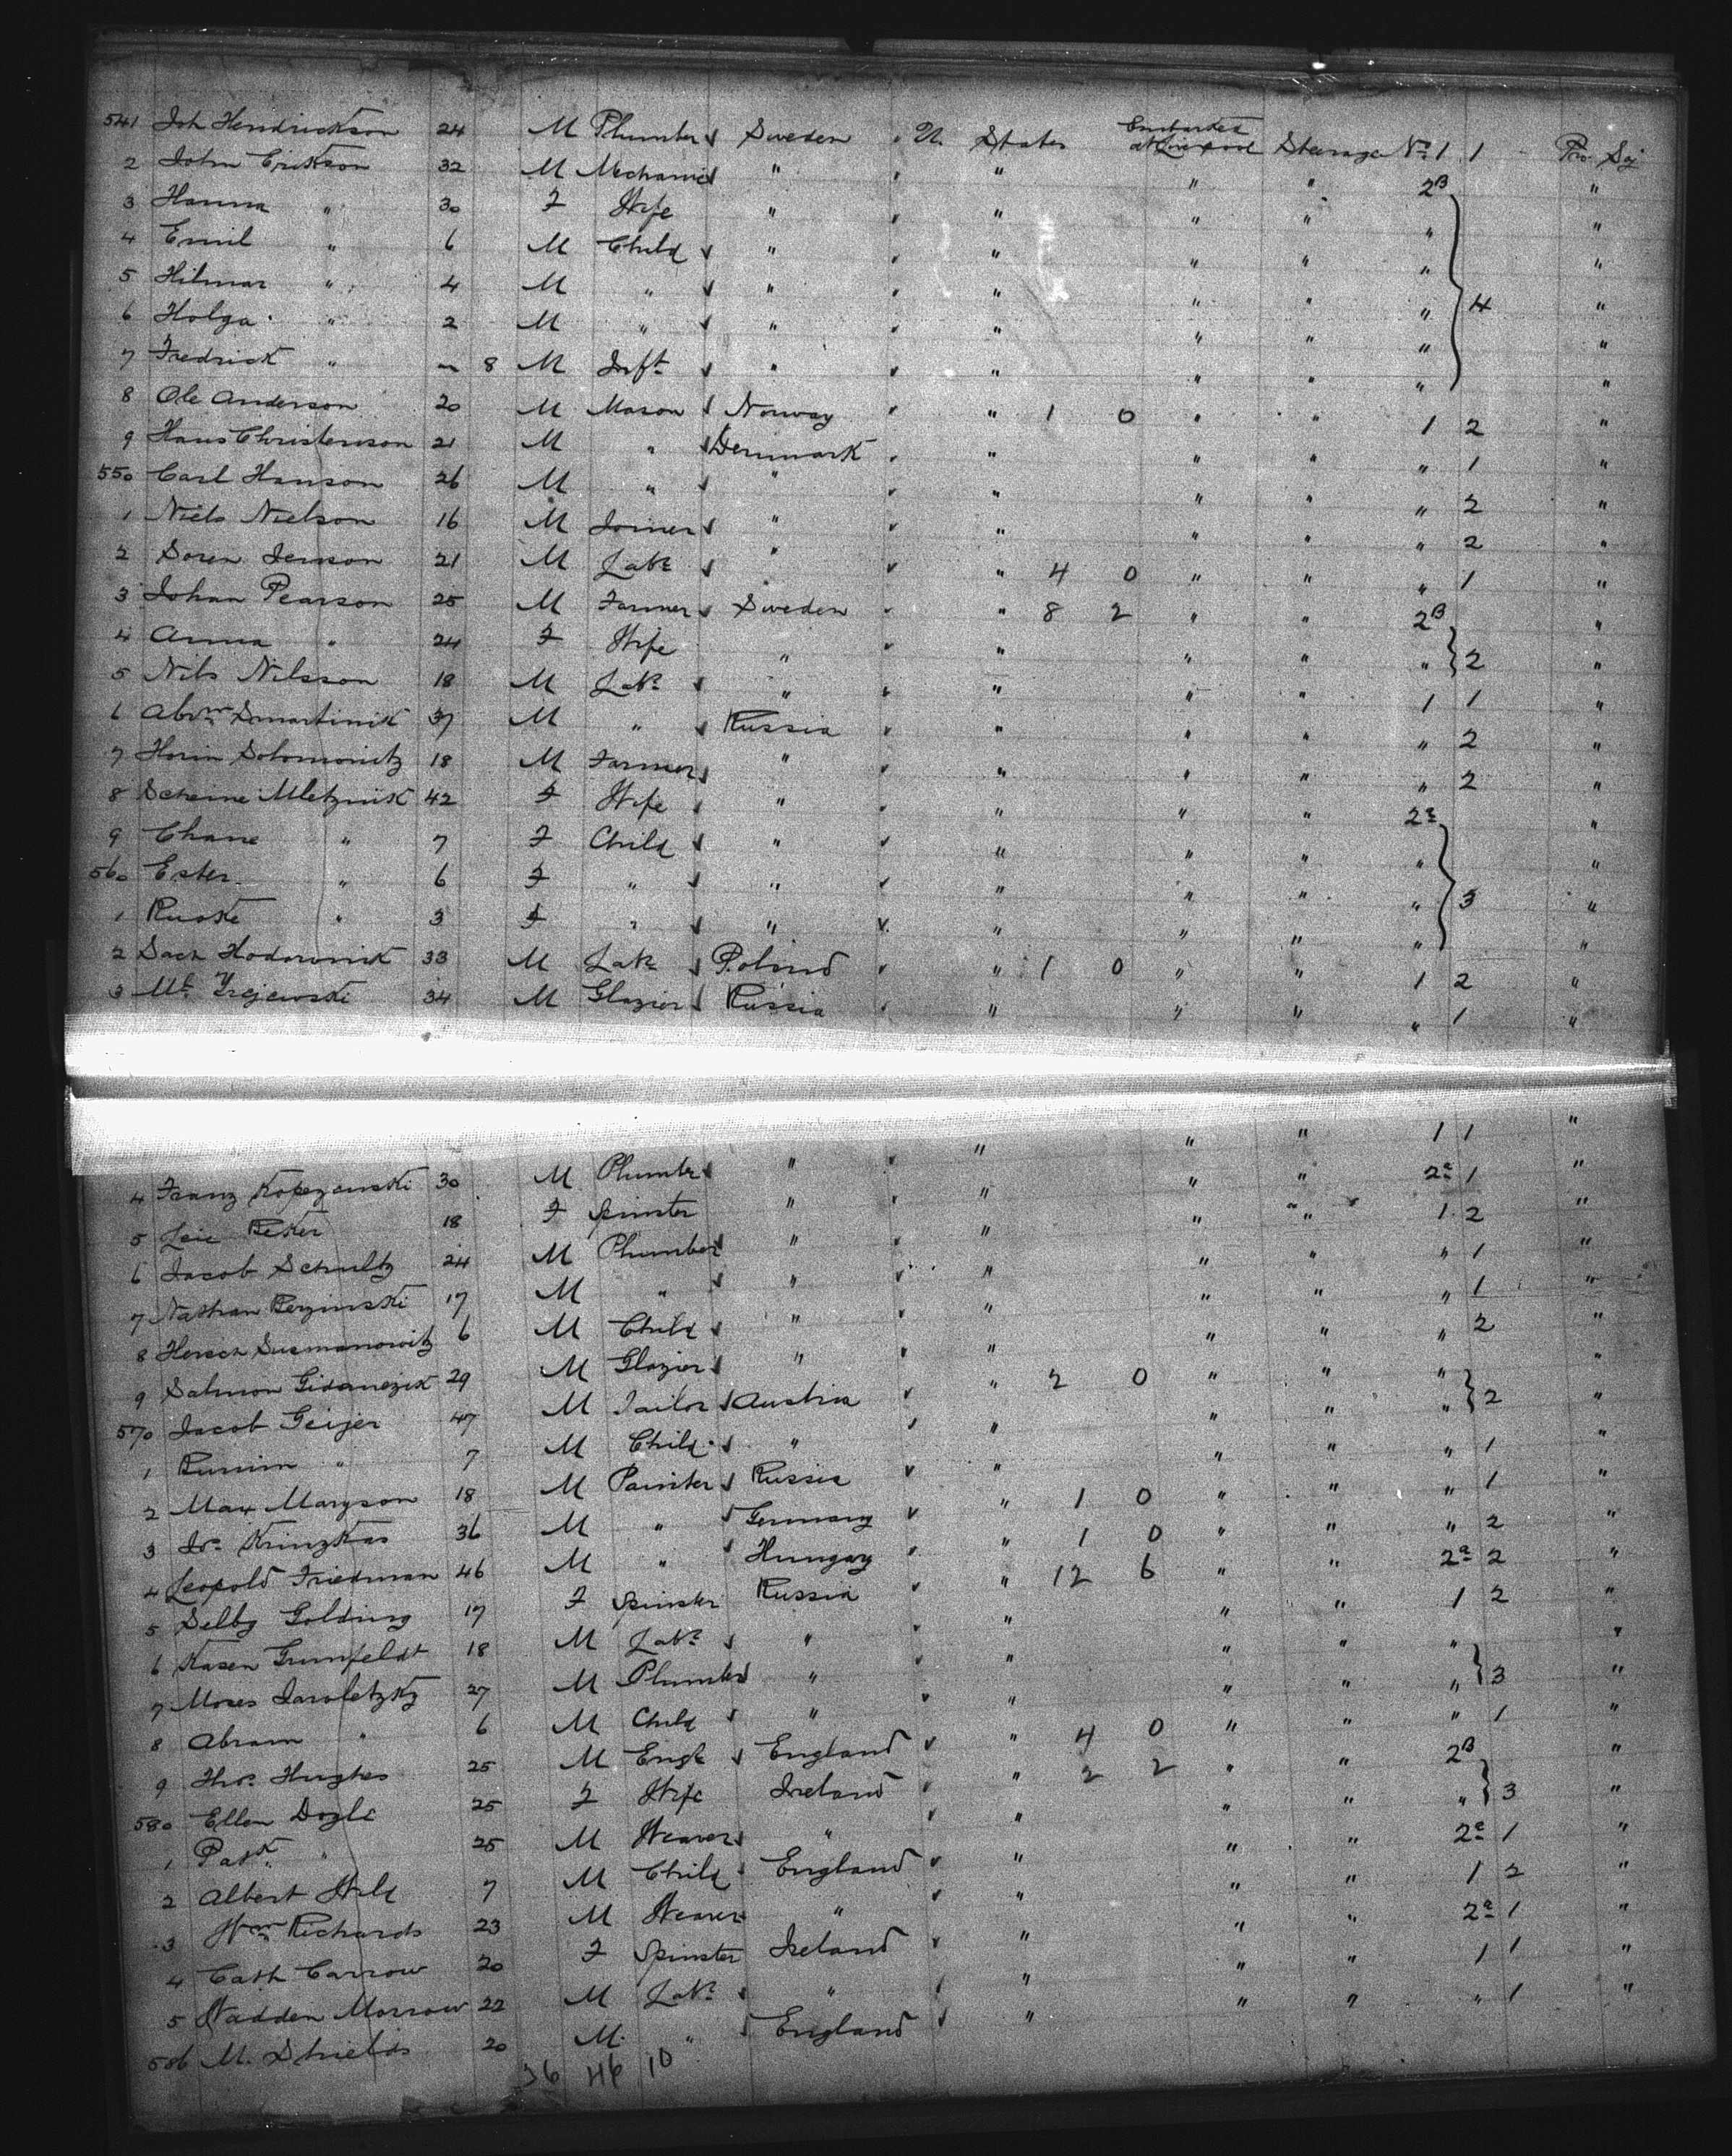 541 Joh Hendrickson 24 M Plumber Sweden U. States Embarked at Liverpool Steerage No 1 1 Pro Soj
2 John Erikson 32 M Mechanic " " " " 2B "
3 Hanna " 30 F Wife " " " " " "
4 Emil " 6 M Child " " " " " "
5 Hilmar " 4 M " " " " " " 4 "
6 Holga " 2 M " " " " " " "
7 Fredrick " 8 M Inft " " " " " "
8 Ole Anderson 20 M Mason Norway " 1 0 " " 1 2 "
9 Hans Christenson 21 M " Denmark " " " " 1 "
550 Carl Hanson 26 M " " " " " " 2 "
1 Niels Nielson 16 M Joiner " " " " " 2 "
2 Soren Jenson 21 M Labr " " 4 0 " " " 1 "
3 Johan Pearson 25 M Farmer Sweden " 8 2 " " 2B "
4 Anna " 24 F Wife " " " " " 2 "
5 Nils Nilsson 18 M Labr " " " " 1 1 "
6 Abrm 37 M " Russia " " " " 2 "
7 Solomonitz 18 M Farmer " " " " " 2 "
8 Scheine Mletznik 42 F Wife " " " " 2a "
9 Chane " 7 F Child " " " " " "
560 Ester " 6 F " " " " " " 3 "
1 Ruske " 3 F " " " " " " "
2 Sach Hodorwnik 33 M Labr Polind " 1 0 " " 1 2 "
3 34 M Glazier Russia " " " " 1 "
4 Franz 30 M Plumbr " " " " 1 1 "
5 Leie Beker 18 F Spinster " " " " 2a 1 "
6 Jacob Schultz 24 M Plumber " " " " 1 2 "
7 Nathan 17 M " " " " " " 1 "
8 Hersch Susmanowitz 6 M Child " " " " " 1 "
9 Salmon 29 M Glazier " " " " " 2 "
570 Jacob Geijer 47 M Tailor Austria " 2 0 " " " 2 "
1 " 7 M Child " " " " " "
2 Max Maryson 18 M Painter Russia " " " " 1 "
3 36 M " Germany " 1 0 " " " 1 "
4 Leopold Friedman 46 M " Hungary " 1 0 " " " 2 "
5 Selby Golding 17 F Spinster Russia " 12 6 " " 2a 2 "
6 Kasen Grunfeldt 18 M Labr " " " " 1 2 "
7 Moses Jaroletzky 27 M Plumber " " " " " 3 "
8 Abram " 6 M Child " " " " " "
9 Thos Hughes 25 M Engr England " 4 0 " " " 1 "
580 Ellen Dogle 25 F Wife Ireland " 2 2 " " 2B 3 "
1 Patk " 25 M Weaver " " " " " "
2 Albert 7 M Child England " " " 2a 1 "
3 Wm Richards 23 M Weaver " " " " 1 2 "
4 Cath Carrow 20 F Spinster Ireland " " " 2a 1 "
5 Morrow 22 M Labr " " " " 1 1 "
586 M. Shields 20 M " England " " " " 1 "
36 46 10